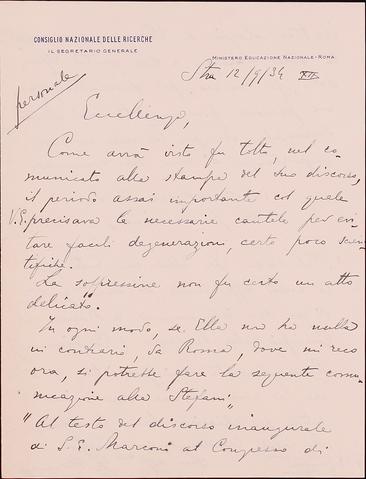 CONSIGLIO NAZIONALE DELLE RICERCHE
IL SEGRETARIO GENERALE
MINISTERO EDUCAZIONE NAZIONALE - ROMA
personale
Stra 12/9/34 XII
Eccellenza,
Come avrà visto fu tolto, nel co-
municato alla stampa del Suo discorso,
il periodo assai importante col quale
V.E. precisava le necessarie cautele per evi-
tare facili degenerazioni, certo poco scien-
tifiche.
La soppressione non fu certo un atto
delicato.
In ogni modo, se Ella non ha nulla
in contrario, da Roma, dove mi reco
ora, si potrebbe fare la seguente comu-
nicazione alla "Stefani"
"Al testo del discorso inaugurale
di S.E. Marconi al Congresso di